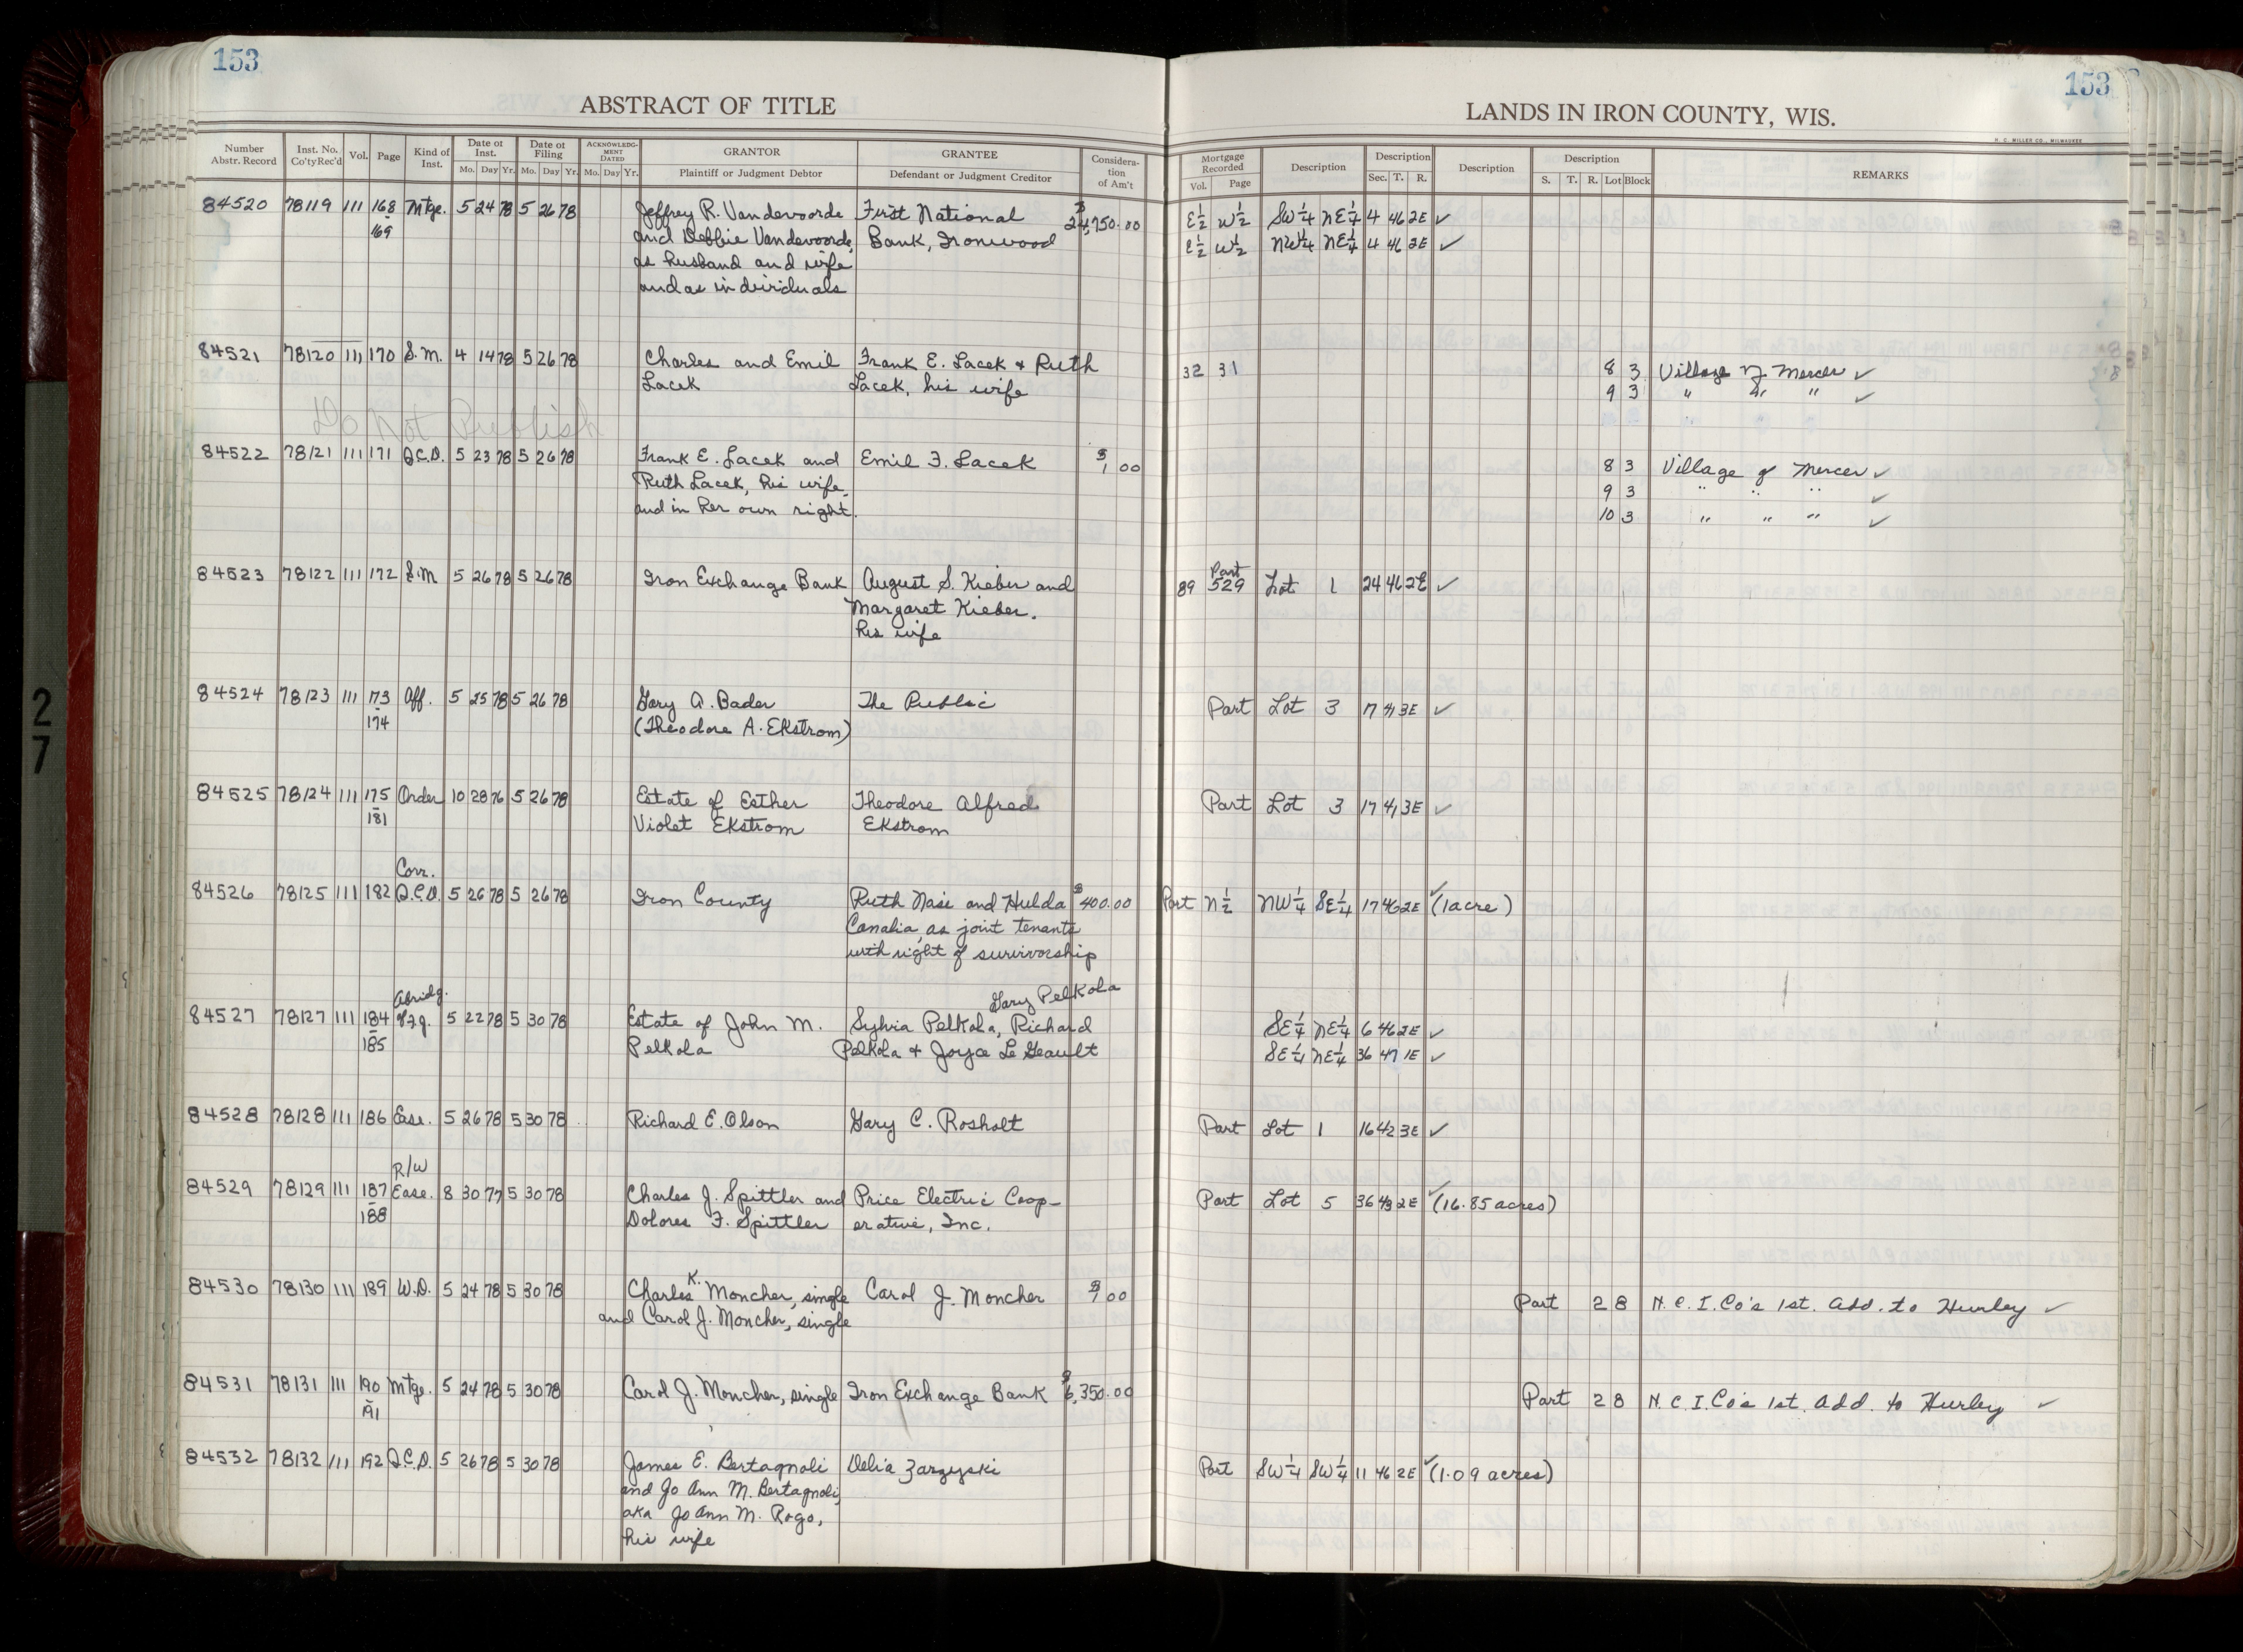 153
153
ABSTRACT OF TITLE
LANDS IN IRON COUNTY, WIS.
H. C. MILLER CO., MILWAUKEE
Number Abstr. Record Inst. No. Co'ty Rec'd Vol. Page Kind of Inst. Date of Inst. Mo. Day Yr. Date of Filing Mo. Day Yr. ACKNOWLEDGMENT DATED Mo. Day Yr. GRANTOR Plaintiff or Judgment Debtor GRANTEE Defendant or Judgment Creditor Consideration of Am't Mortgage Recorded Vol. Page Description Description Sec. T. R. Description Description S. T. R. Lot Block REMARKS
84520 78119 111 168 Mtge. 5 24 78 5 26 78 Jeffrey R. Vandevoorde First National $24,750.00 E½ W½ SW¼ NE¼ 4 46 2E ✓
169 and Debbie Vandevoorde, Bank, Ironwood E½ W½ NW¼ NE¼ 4 46 2E ✓
as husband and wife
and as individuals
84521 78120 111 170 S.M. 4 14 78 5 26 78 Charles and Emil Frank E. Lacek + Ruth 32 31 8 3 Village of Mercer ✓
Lacek Lacek, his wife 9 3 " " " ✓
Do Not Publish
84522 78121 111 171 Q.C.D. 5 23 78 5 26 78 Frank E. Lacek and Emil F. Lacek $1 00 8 3 Village of Mercer ✓
Ruth Lacek, his wife, 9 3 " " " ✓
and in her own right. 10 3 " " " ✓
84523 78122 111 172 S.M 5 26 78 5 26 78 Iron Exchange Bank August S. Kieber and 89 529 Part Lot 1 24 46 2E ✓
Margaret Kieber.
his wife
84524 78123 111 173 Aff. 5 25 78 5 26 78 Gary A. Bader The Public Part Lot 3 17 41 3E ✓
174 (Theodore A. Ekstrom)
84525 78124 111 175 Order 10 28 76 5 26 78 Estate of Esther Theodore Alfred Part Lot 3 17 41 3E ✓
181 Violet Ekstrom Ekstrom
Corr.
84526 78125 111 182 Q.C.D. 5 26 78 5 26 78 Iron County Ruth Nasi and Hulda $400.00 Part N½ NW¼ SE¼ 17 46 2E ✓ (1 acre)
Canalia, as joint tenants
with right of survivorship
Abridg. Gary Pelkola
84527 78127 111 184 5 22 78 5 30 78 Estate of John M. Sylvia Pelkola, Richard SE¼ NE¼ 6 46 2E ✓
185 Pelkola Pelkola + Joyce Le Geault SE¼ NE¼ 36 47 1E ✓
84528 78128 111 186 Ease. 5 26 78 5 30 78 Richard E. Olson Gary C. Rosholt Part Lot 1 16 42 3E ✓
R/W
84529 78129 111 187 Ease. 8 30 77 5 30 78 Charles J. Spittler and Price Electric Coop- Part Lot 5 36 43 2E ✓ (16.85 acres)
188 Dolores F. Spittler erative, Inc.
84530 78130 111 189 W.D. 5 24 78 5 30 78 Charles K. Moncher, single Carol J. Moncher $1 00 Part 2 8 N. C. I. Co's 1st. Add. to Hurley ✓
and Carol J. Moncher, single
84531 78131 111 190 Mtge. 5 24 78 5 30 78 Carol J. Moncher, single Iron Exchange Bank $6,350.00 Part 2 8 N. C. I. Co's 1st. Add. to Hurley ✓
191
84532 78132 111 192 Q.C.D. 5 26 78 5 30 78 James E. Bertagnoli Delia Zarzyski Part SW¼ SW¼ 11 46 2E ✓ (1.09 acres)
and Jo Ann M. Bertagnoli,
aka Jo Ann M. Rogo,
his wife
27